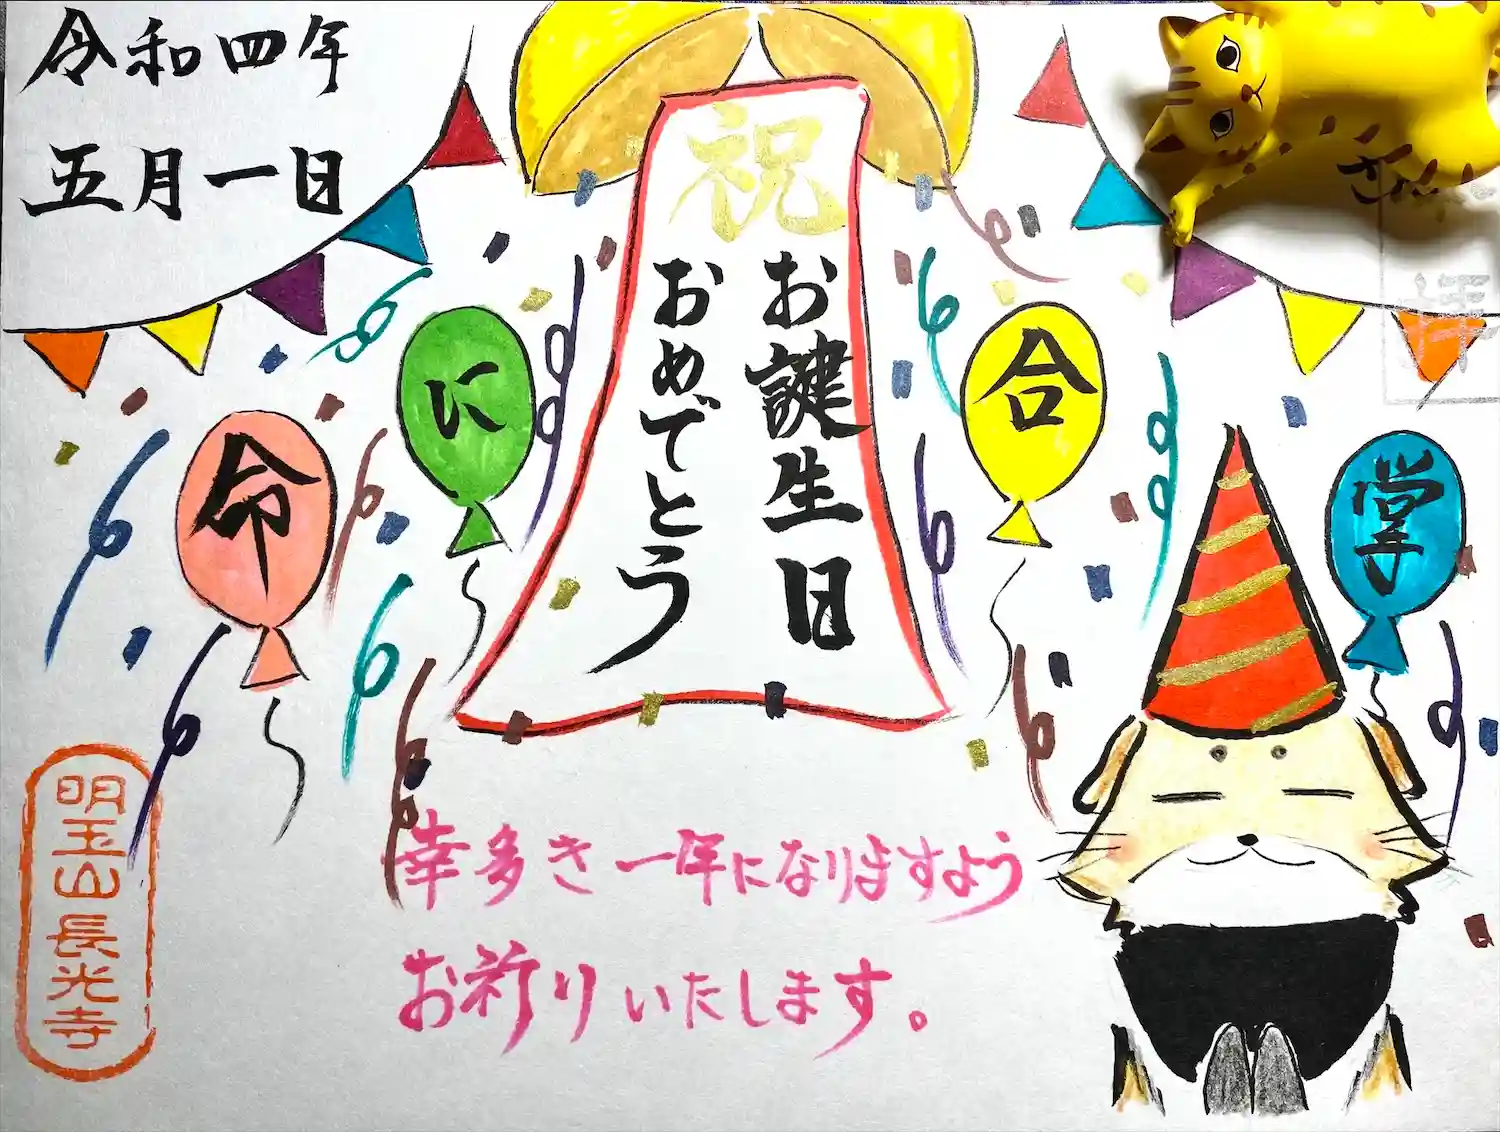 令和四年
五月一日
祝
お誕生日
おめでとう
命
に
合
掌
幸多き一年になりますよう
お祈りいたします。
明玉山長光寺